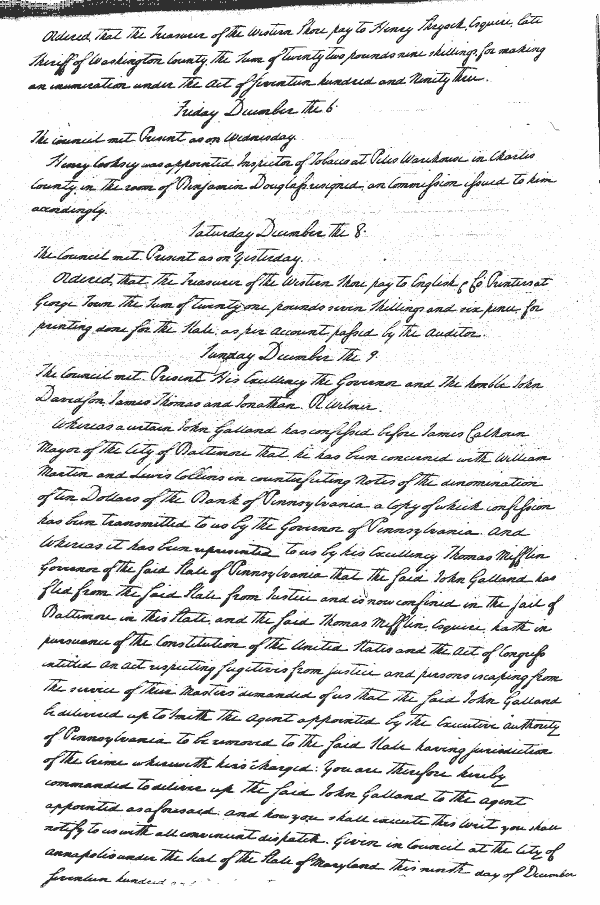 Ordered, that the Treasurer of the Western Shore pay to Henry Shryock, Esquire, late
Sheriff of Washington County, the Sum of twenty two pounds nine shillings for making
an enumeration under the Act of Seventeen hundred and Ninety three.
Friday December the 6
The Council met Present as on Wednesday.
Henry Cooksey was appointed Inspector of Tobacco at Piles Warehouse in Charles
County, in the room of Benjamin Douglass resigned, on Commission issued to him
accordingly.
Saturday December the 8.
The Council met. Present as on Yesterday.
Ordered, that the Treasurer of the Western Shore pay to English & Co Printers at
George Town the Sum of twenty one pounds seven Shillings and six pence, for
printing done for the State, as per Account passed by the Auditor.
Sunday December the 9.
The Council met. Present His Excellency the Governor and the honble John
Davidson, James Thomas and Jonathan R Wilmer.
Whereas a certain John Galland has confessed before James Calhoun
Mayor of the City of Baltimore that he has been concerned with William
Martin and Lewis Collins in counterfeiting Notes of the denomination
of ten Dollars of the Bank of Pennsylvania a copy of which confession
has been transmitted to us by the Governor of Pennsylvania. And
Whereas it has been represented to us by his Excellency Thomas Mifflin
Governor of the said State of Pennsylvania that the said John Galland has
fled from the said State from Justice and is now confined in the jail of
Baltimore in this State, and the said Thomas Mifflin Esquire, hath in
pursuance of the Constitution of the United States and the Act of Congress
intitled An Act respecting fugitives from justice and persons escaping from
the service of their Masters demanded of us that the said John Galland
be delivered up to Smith the Agent appointed by the Executive authority
of Pennsylvania to be removed to the said State having jurisdiction
of the Crime wherewith he is charged. You are therefore hereby
commanded to deliver up the said John Galland to the Agent
appointed as aforesaid. and how you shall execute this Writ you shall
notify to us with all convenient dispatch. Given in Council at the City of
Annapolis under the seal of the State of Maryland this ninth day of December
Seventeen hundred